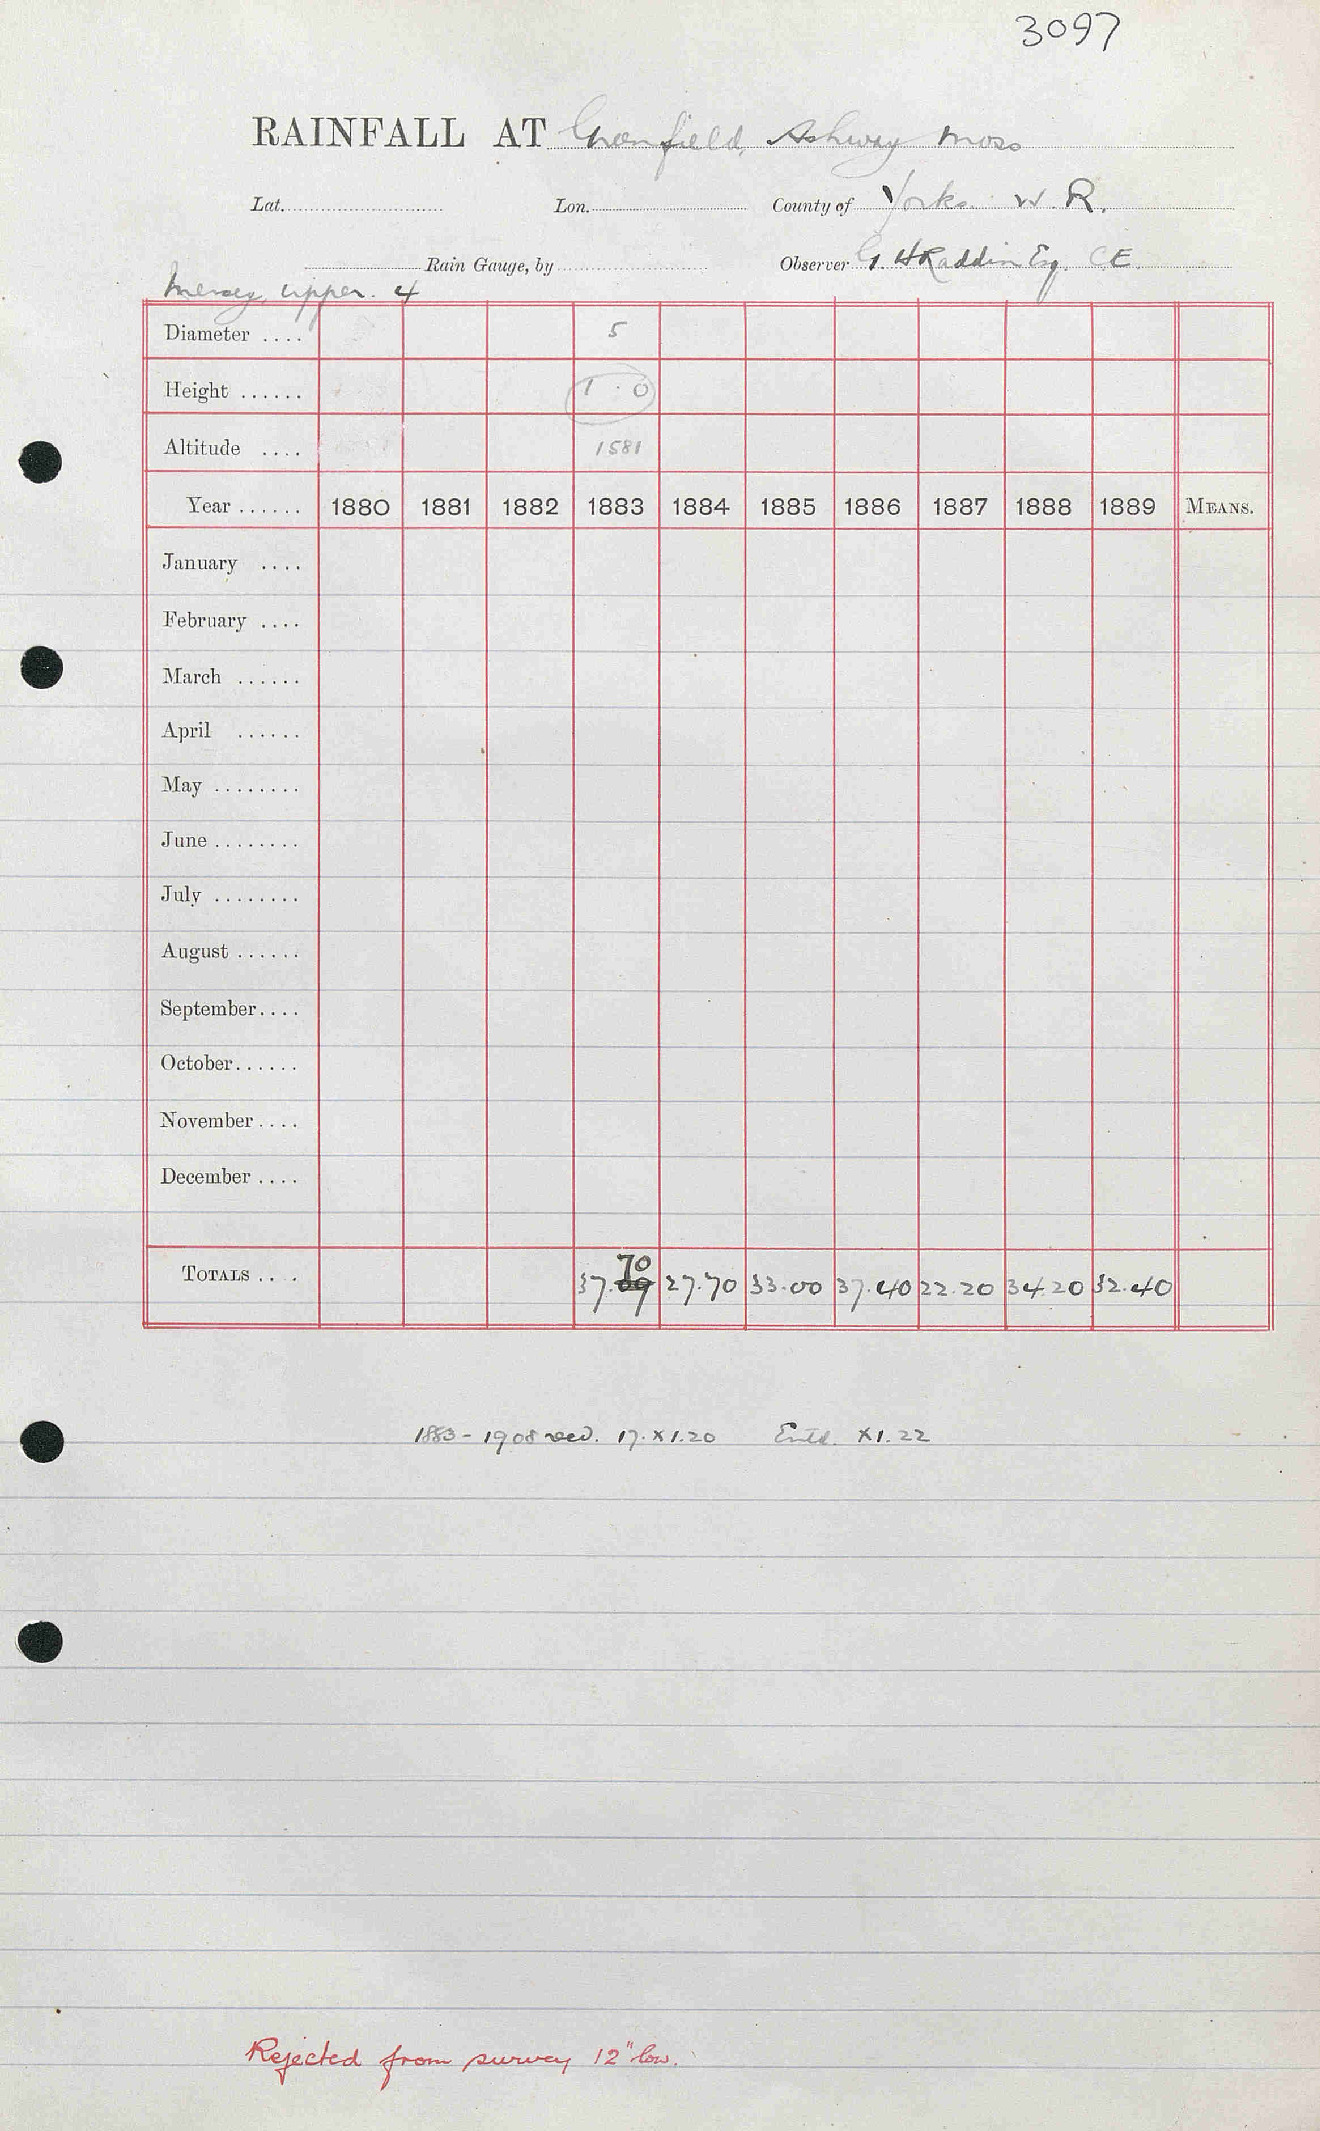 3097
RAINFALL AT Greenfield, Ashway Moss
Lat. Lon. County of Yorks W.R.
Rain Gauge, by Observer G. H. Raddin Esq. C.E.
Mersey, Upper. 4
Diameter .... 5
Height ...... 1 . 0
Altitude .... 1581
Year ...... 1880 1881 1882 1883 1884 1885 1886 1887 1888 1889 MEANS.
January ....
February ....
March ......
April ......
May ........
June ........
July ........
August ......
September....
October......
November....
December ....
70
TOTALS .... 37.09 27.70 33.00 37.40 22.20 34.20 32.40
1883-1908 17. x1.20 x1.22
Rejected from survey 12" low.